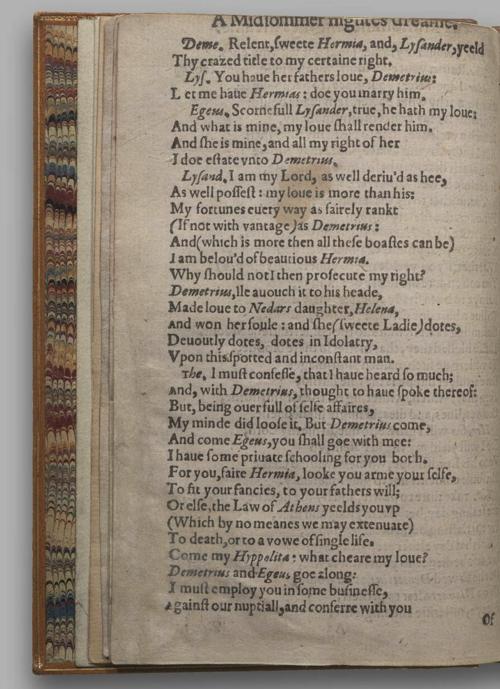 A Midsommer nightes dreame.
Deme. Relent, ſweete Hermia, and, Lyſander, yeeld
Thy crazed title to my certaine right.
Lyſ. You haue her fathers loue, Demetrius:
Let me haue Hermias: doe you marry him.
Egeus. Scornefull Lyſander, true, he hath my loue:
And what is mine, my loue ſhall render him.
And ſhe is mine, and all my right of her
I doe eſtate vnto Demetrius.
Lyſand. I am my Lord, as well deriu'd as hee,
As well poſſeſt: my loue is more than his:
My fortunes euery way as fairely rankt
(If not with vantage) as Demetrius:
And (which is more then all theſe boaſtes can be)
I am belou'd of beautious Hermia.
Why ſhould not I then proſecute my right?
Demetrius, Ile auouch it to his heade,
Made loue to Nedars daughter, Helena,
And won her ſoule: and ſhe (ſweete Ladie) dotes,
Deuoutly dotes, dotes in Idolatry,
Vpon this ſpotted and inconſtant man.
The. I muſt confeſſe, that I haue heard ſo much;
And, with Demetrius, thought to haue ſpoke thereof:
But, being ouer full of ſelfe affaires,
My minde did looſe it. But Demetrius come,
And come Egeus, you ſhall goe with mee:
I haue ſome priuate ſchooling for you both.
For you, faire Hermia, looke you arme your ſelfe,
To fit your fancies, to your fathers will;
Or elſe, the Law of Athens yeelds you vp
(Which by no meanes we may extenuate)
To death, or to a vowe of ſingle life.
Come my Hyppolita: what cheare my loue?
Demetrius and Egeus goe along:
I muſt employ you in ſome buſineſſe,
Againſt our nuptiall, and conferre with you
Of